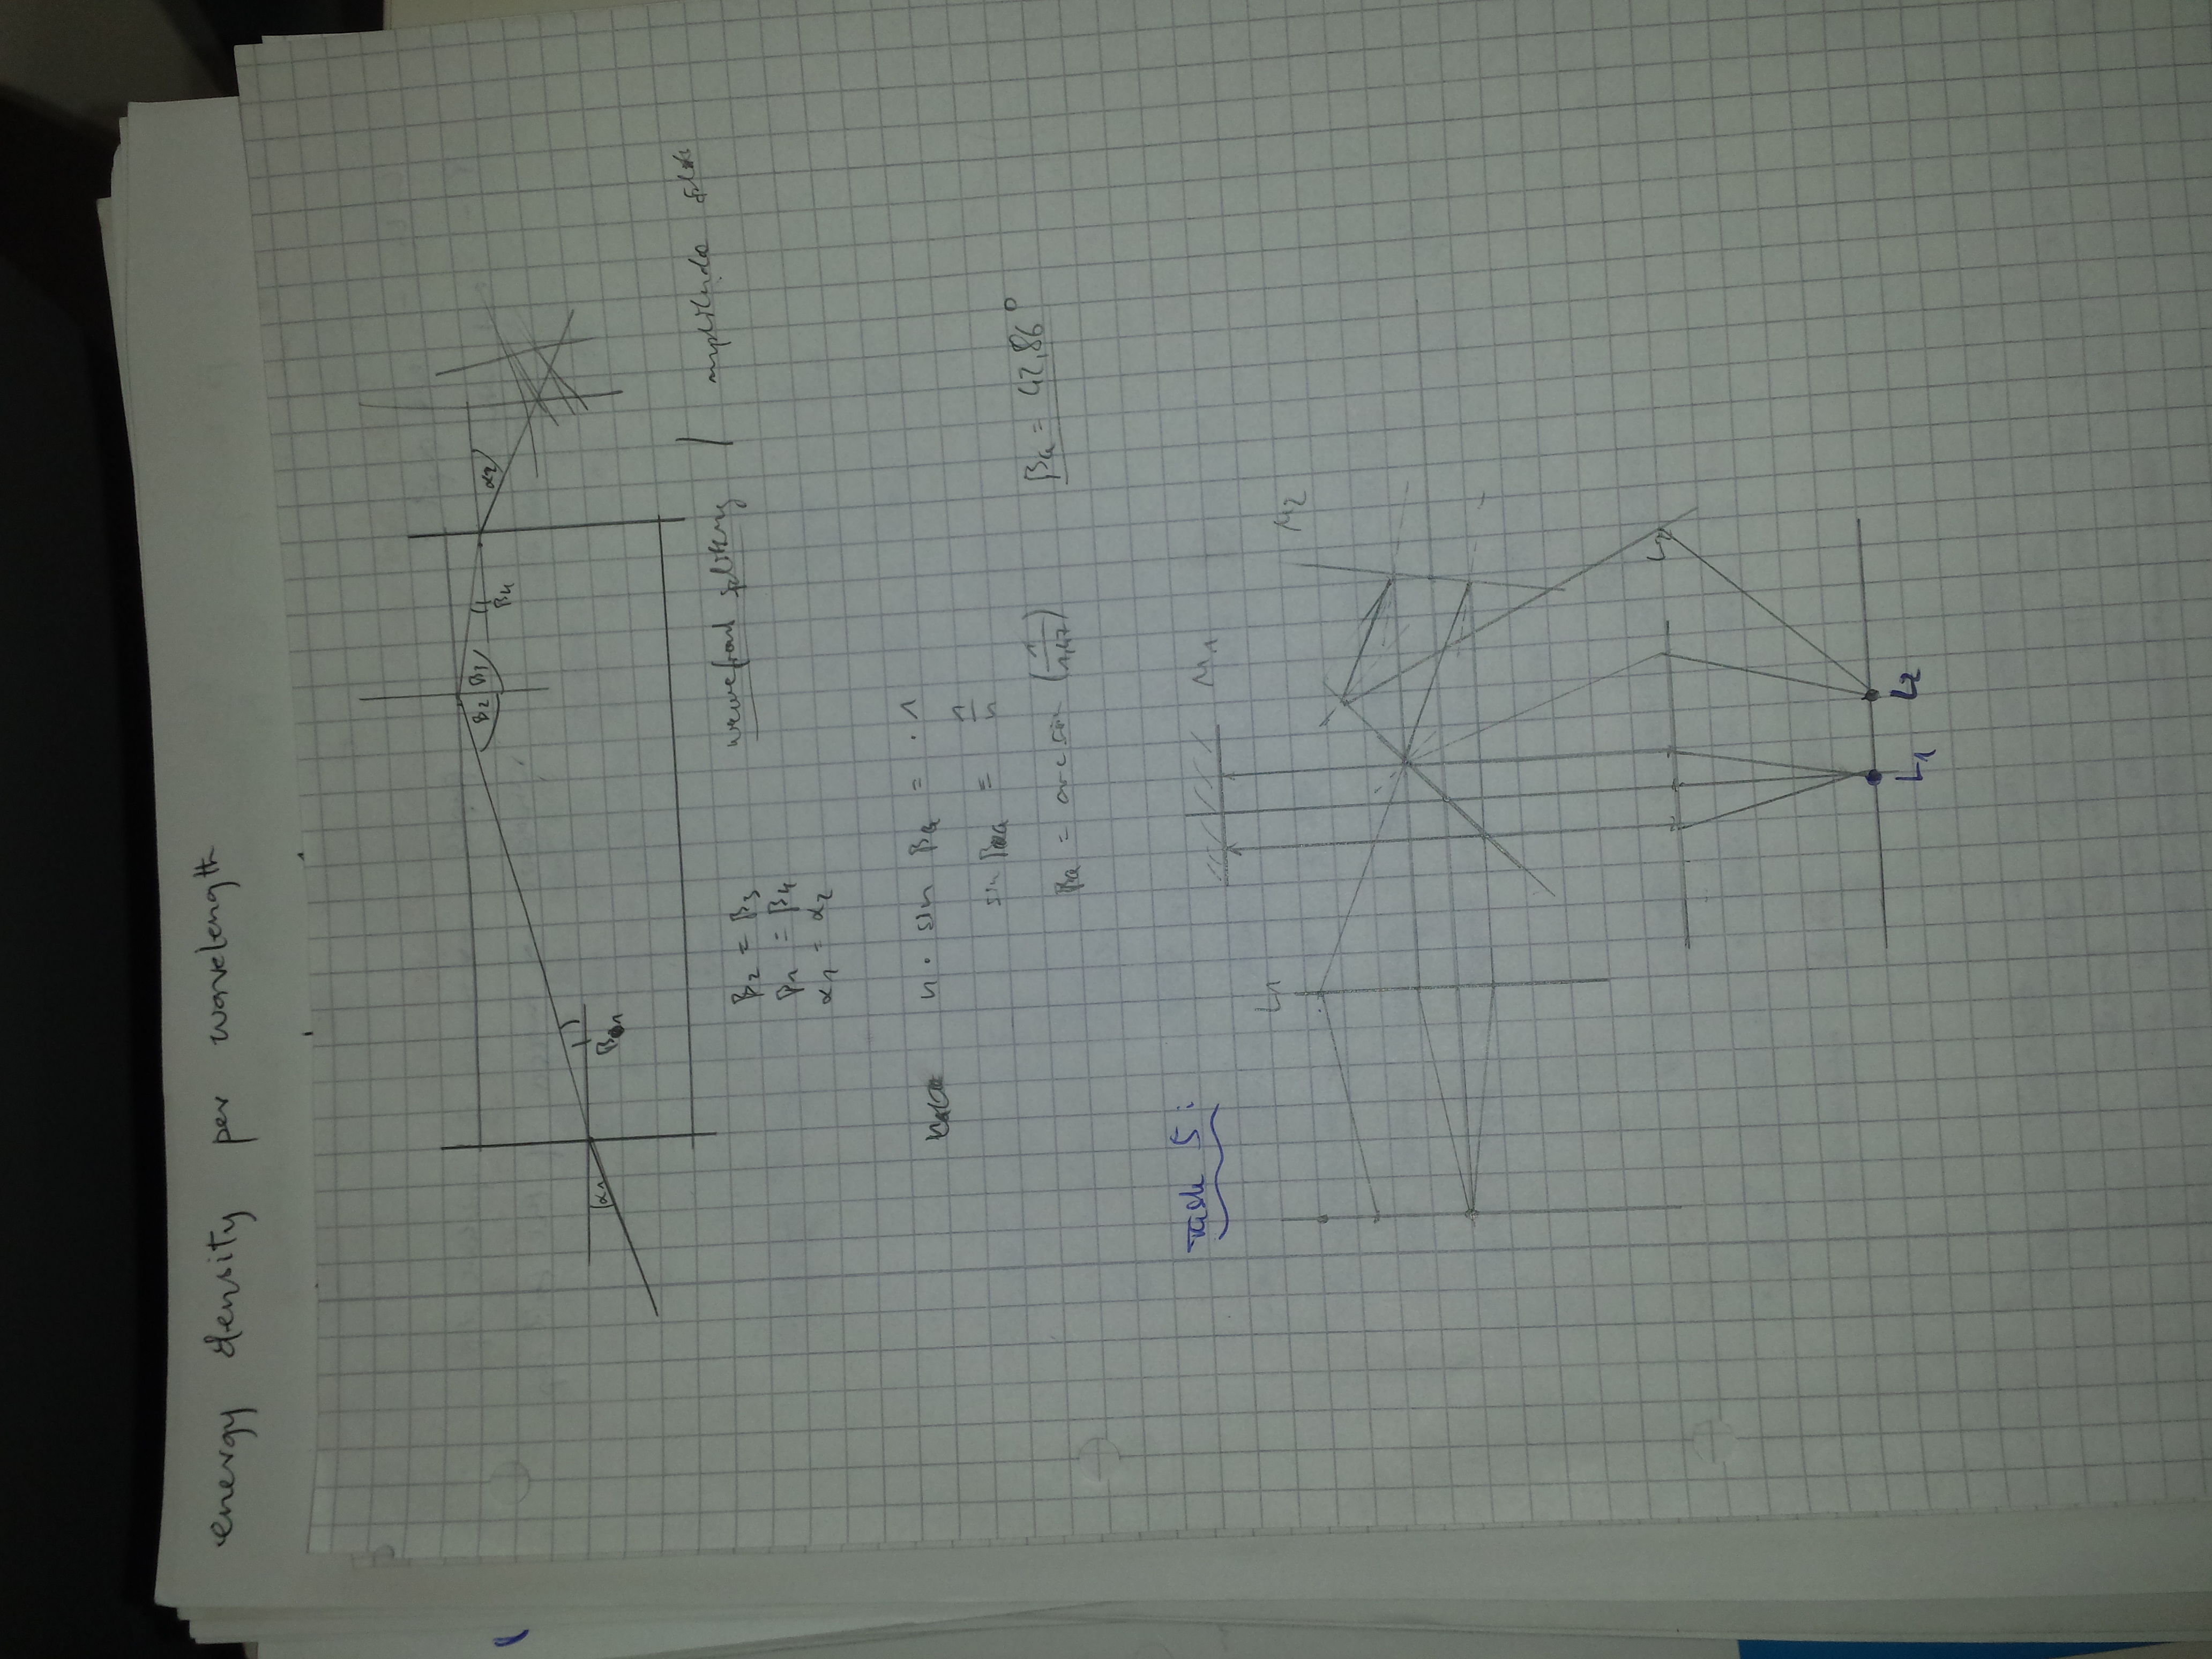 energy density per wavelength
β2 β3
β4
α2
α1
β1
wavefront splitting / amplitude
β2 = β3
β1 = β4
α1 = α2
n · sin βa = · 1
sin βa = 1/n
βa = arc sin (1/1,47) βa = 42,86°
Task 5:
M1
L1
M2
L2
L1 L2